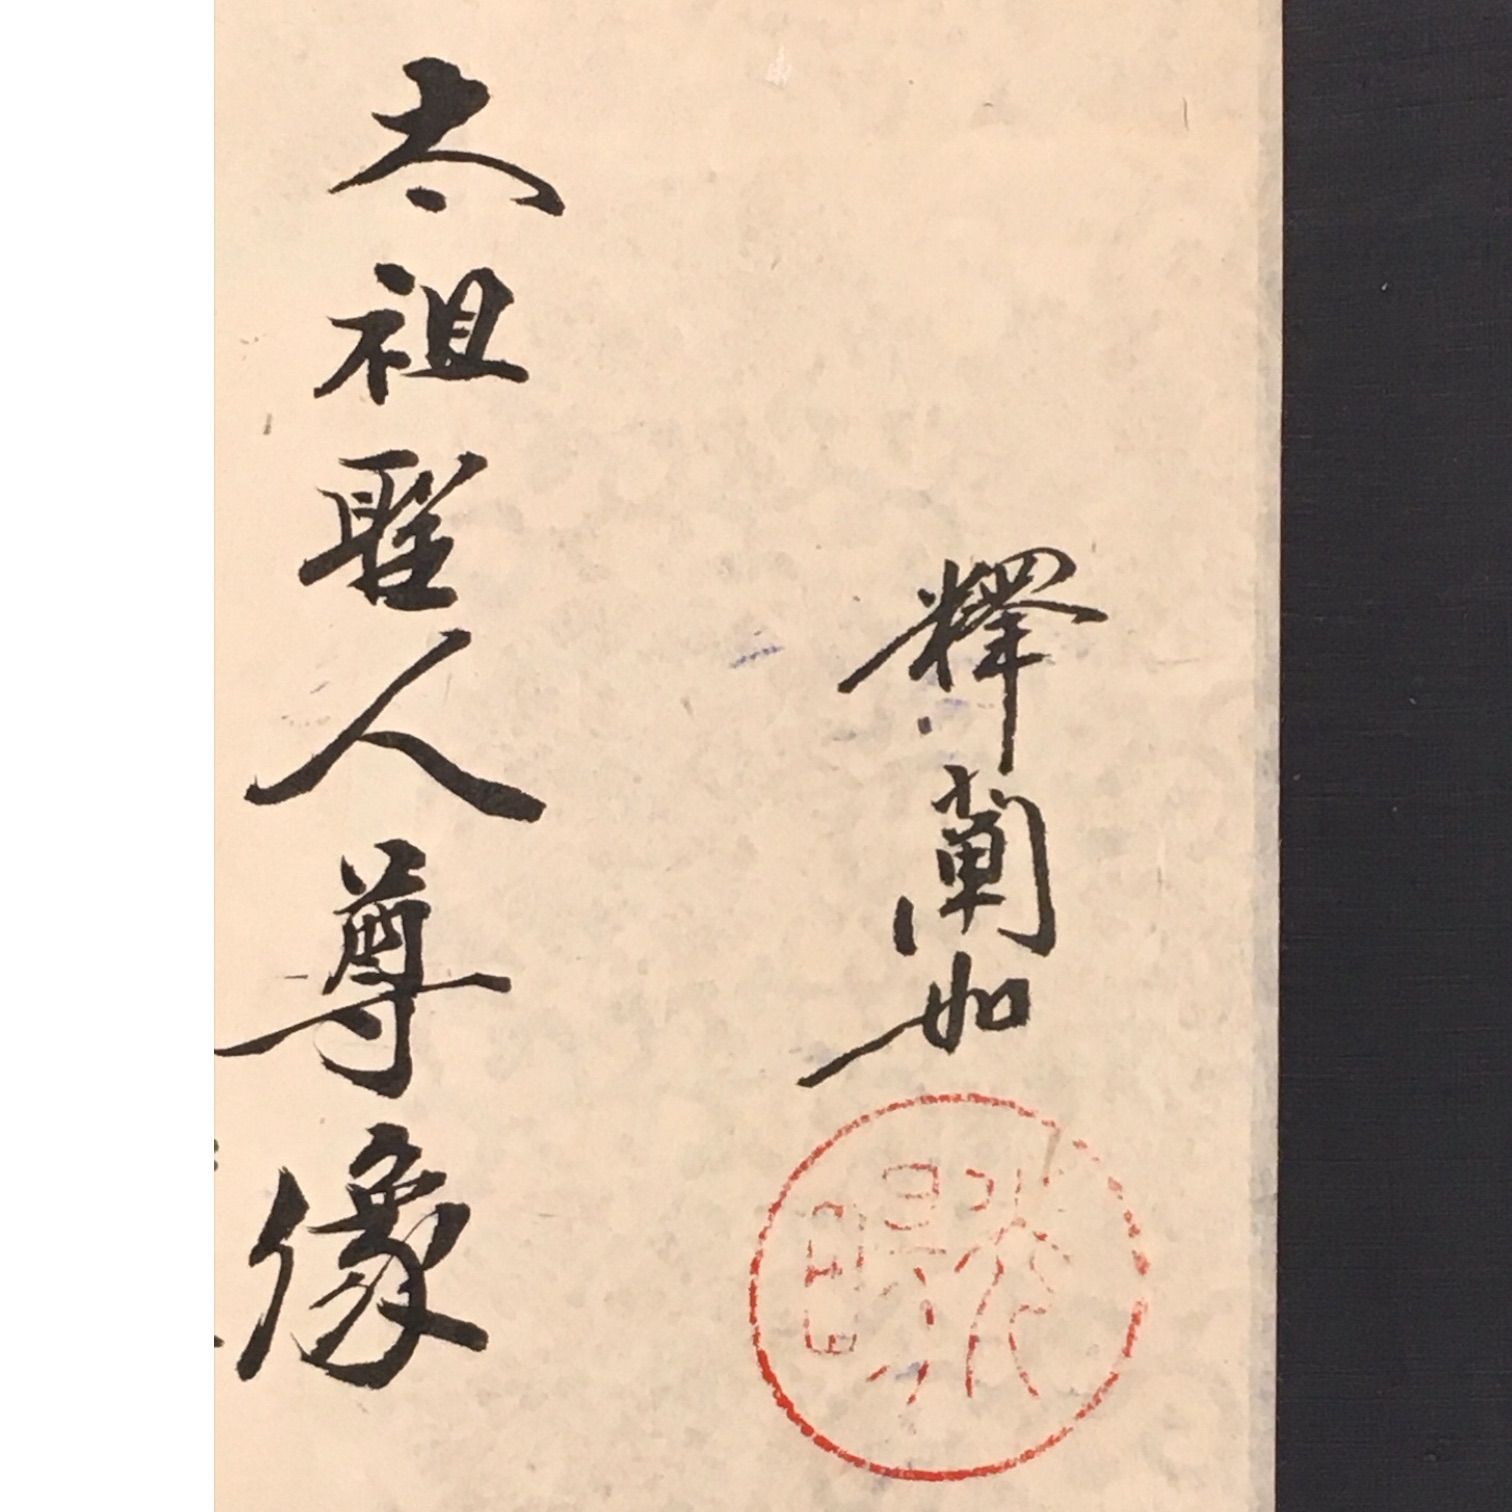 釋闡如
太祖聖人尊像